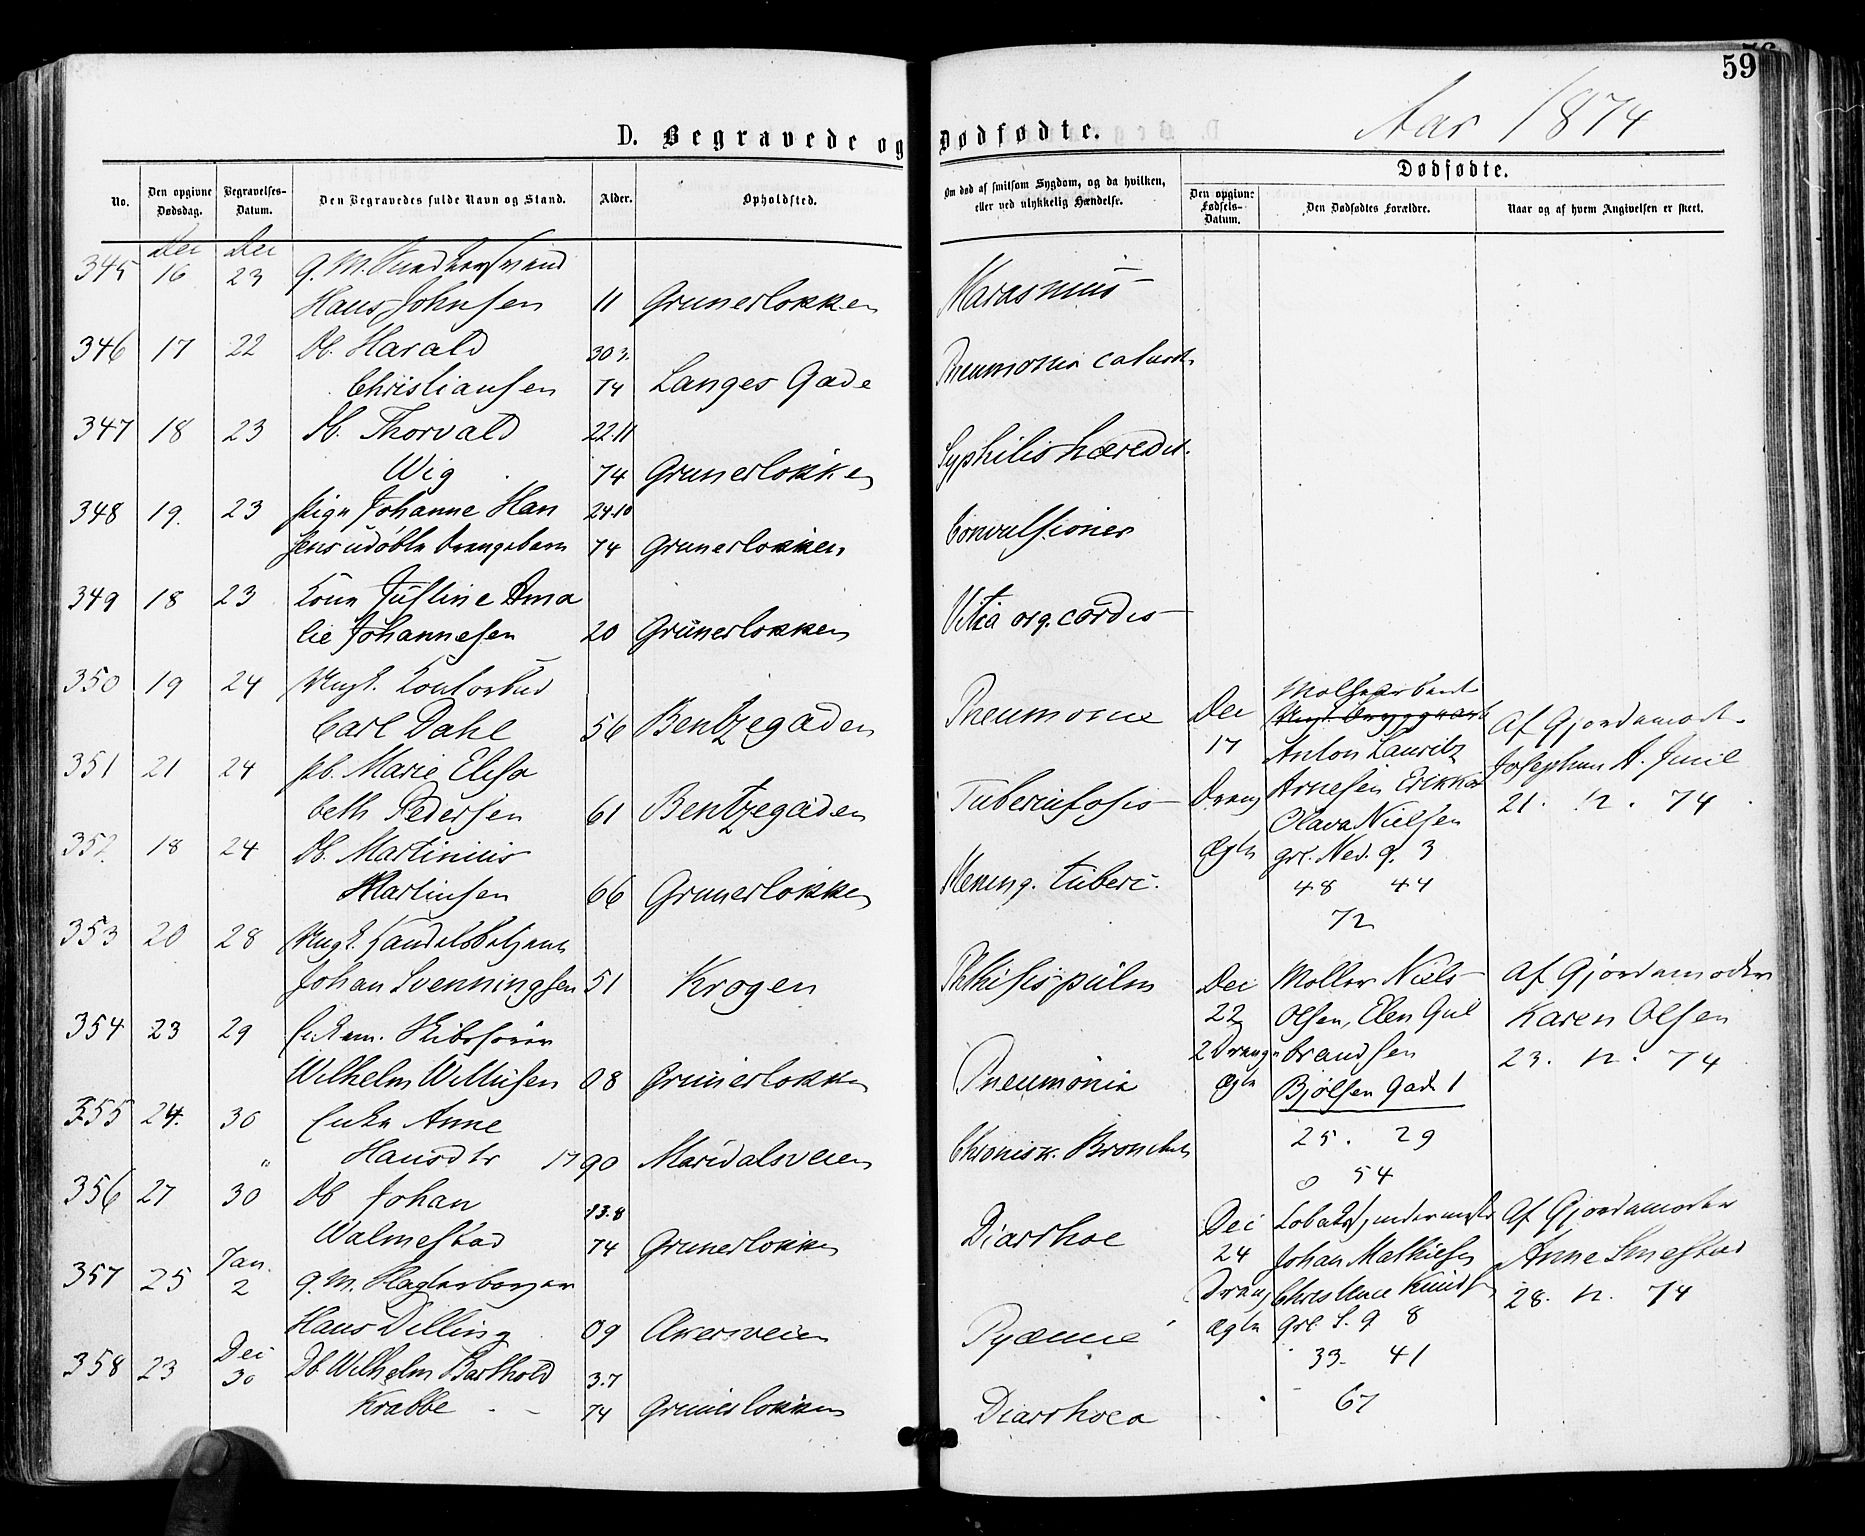 59
D. Begravede og Dødfødte.
Aar 1874
No.
Den opgivne Dødsdag.
Begravelses-Datum.
Den Begravedes fulde Navn og Stand.
Alder.
Opholdsted.
Om død af smitsom Sygdom, og da hvilken, eller ved ulykkelig Hændelse.
Dødfødte.
Den opgivne Fødsels-Datum.
Den Dødfødtes Forældre.
Naar og af hvem Angivelsen er skeet.
Dec Dec
345 16 23 g. M.
Hans Johnsen 11 Grunerlokken Marasmus
346 17 22 Db. Harald 30 3.
Christiansen 74 Langes Gade Pneumonia catarrh
347 18 23 Db. Thorvald 22.11
Wig 74 Grunerlokken Syphilis hæredit.
348 19. 23 Pign Johanne Han 24.10
sens udøbte Drengebarn 74 Grunerlokken Convulsioner
349 18 23 Kone Justine Ama
lie Johannesen 20 Grünerlokken Vitia org. cordis
350 19 24 Ungk. Contorbud
Carl Dahl 56 Bentzegaden Pneumonie
351 21 24 pb. Marie Elisa
beth Pedersen 61 Bentzegaden Tuberculosis
352. 18 24 Db. Martinius
Martinsen 66 Grunerlokken Mening. tuberc.
353 20 28 Ungk. Handelsbetjent
Johan Svenningsen 51 Krogen Phthisis pulm
354 23 29 Enkem.
Wilhelm 08 Grunerlokken Pneumonia
355 24. 30 Enke Anne
" Hansdtr 1790 Maridalsveien Chronisk. Bronchit
356 27 30 Db Johan 13.8
Walmestad 74 Grunerlokken Diarrhoe
Jan.
357 25 2 g. M.
Hans Dilling 09 Akersveien Pyæmie
Dec
358 23 30 Db Wilhelm Barthold 3.7
Krabbe 74 Grunerlokken Diarrhoea
Dec
17
Dreng
Ægte
Anton Lauritz
Arnesen Erikka
Olava Nielsen
grl. Ned. g. 3
48 44
72
Af Gjordemoder
Josephine A. Juul
21. 12. 74
Dec
22
2 Drenge
Ægte
Møller Niels
Olsen, Elen Gul
brandsen
Bjølsen Gade 1
25. 29
54
Af Gjordemoder
Karen Olsen
23. 12. 74
Dec
24
Dreng
Ægte
Johan Mathiesen
Christine Knuds
grl. S. g 8
33. 41
67
Af Gjordemoder
Anne Smestad
28. 12. 74